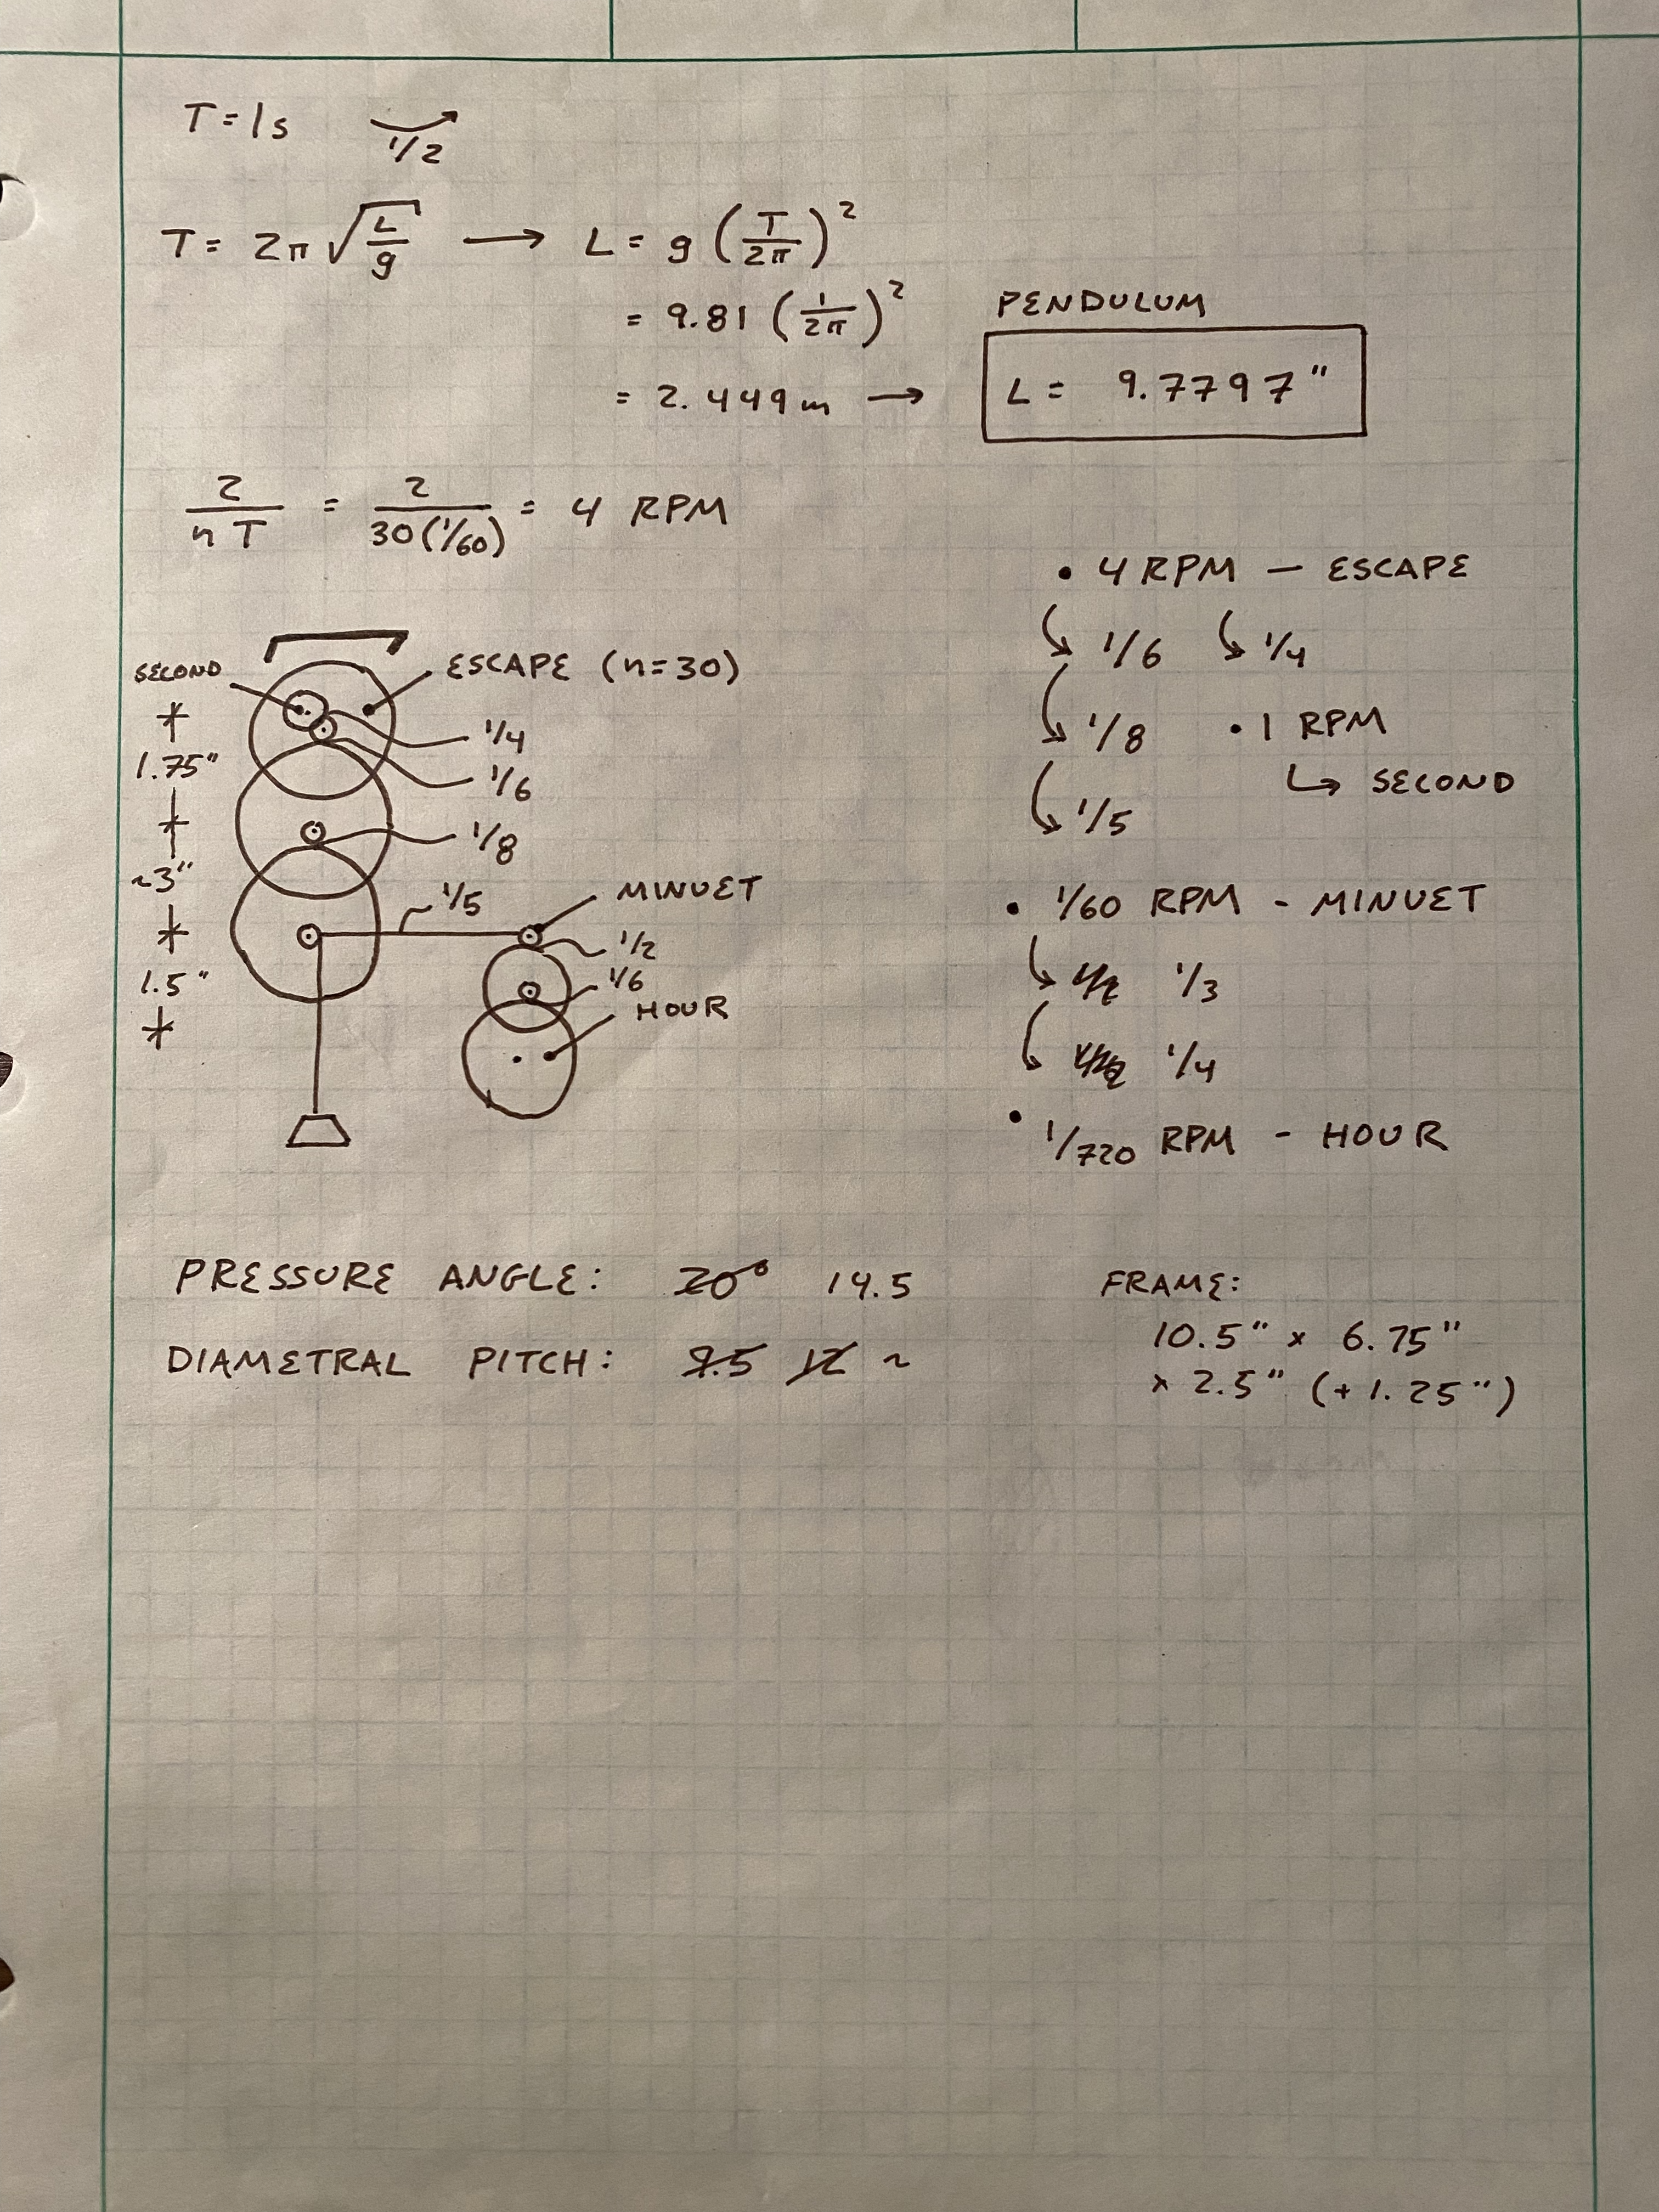 T = 1s 1/2
T = 2π √(L/g) → L = g (T/2π)²
= 9.81 (1/2π)²
= 2.449 m →
PENDULUM
L = 9.7797"
2/nT = 2/30(1/60) = 4 RPM
SECOND
ESCAPE (n=30)
1/4
1.75"
1/6
1/8
~3"
1/5
MINUET
1/2
1.5"
1/6
HOUR
• 4 RPM – ESCAPE
1/6 1/4
1/8 • 1 RPM
↳ SECOND
1/5
• 1/60 RPM - MINUET
1/3
1/4
• 1/720 RPM - HOUR
PRESSURE ANGLE: 20° 14.5
DIAMETRAL PITCH: 9.5 12 ~
FRAME:
10.5" x 6.75"
x 2.5" (+ 1.25")